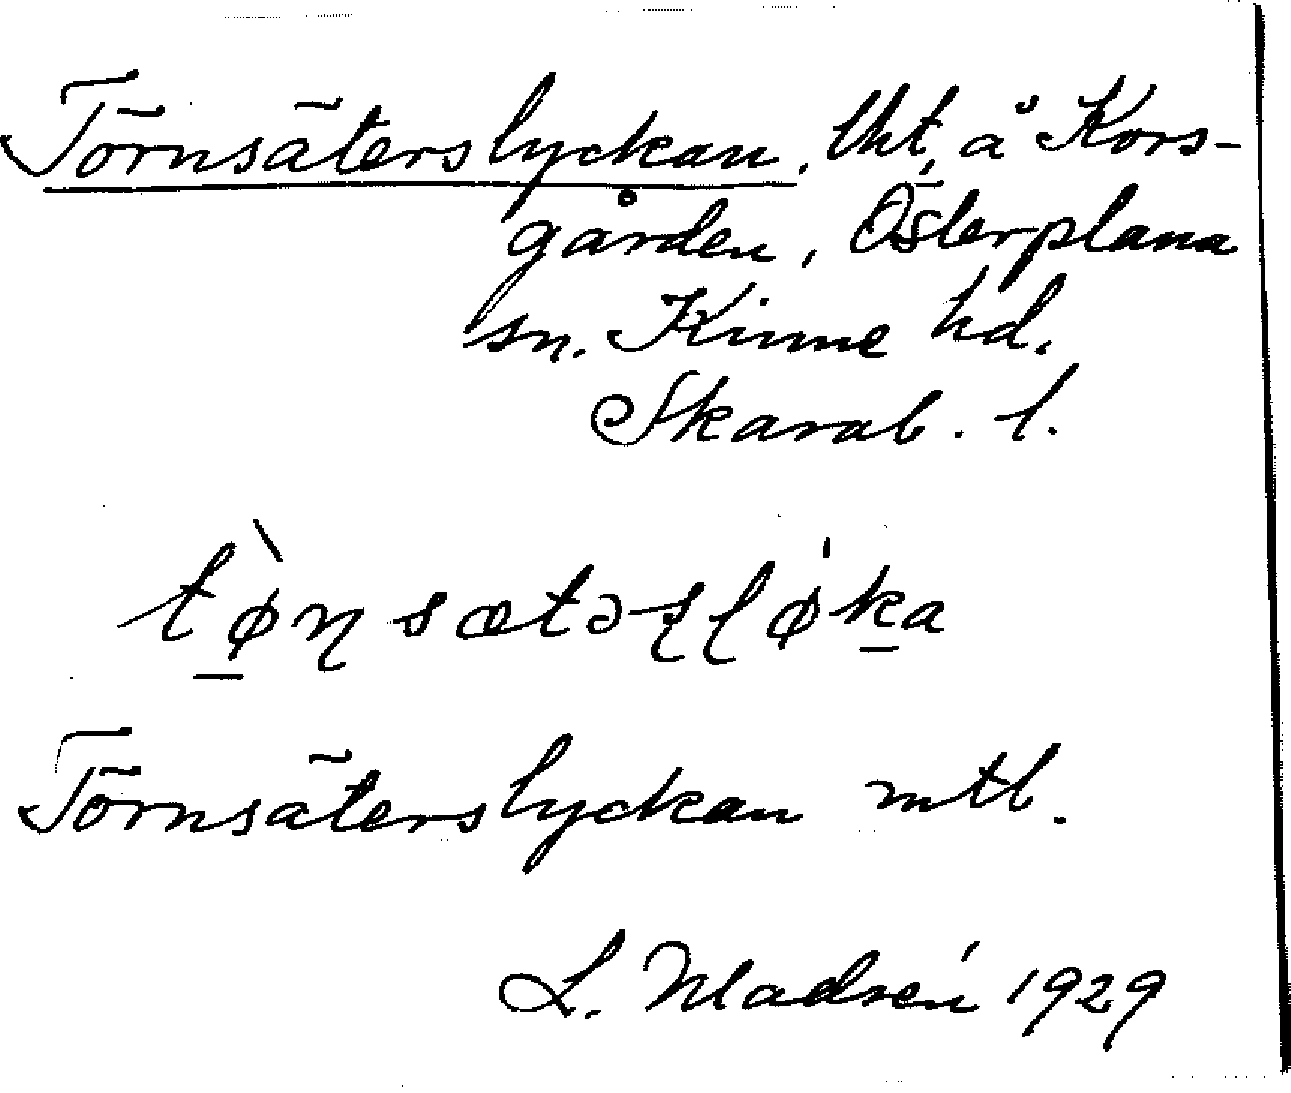 Törnsäterslyckan. Uht. å Kors-
gården, Österplana
sn. Kinne hd.
Skarab. l.
tø̀ɳsætəʂɭø̍ka
Törnsäterslyckan mtl.
L. Madsén 1929